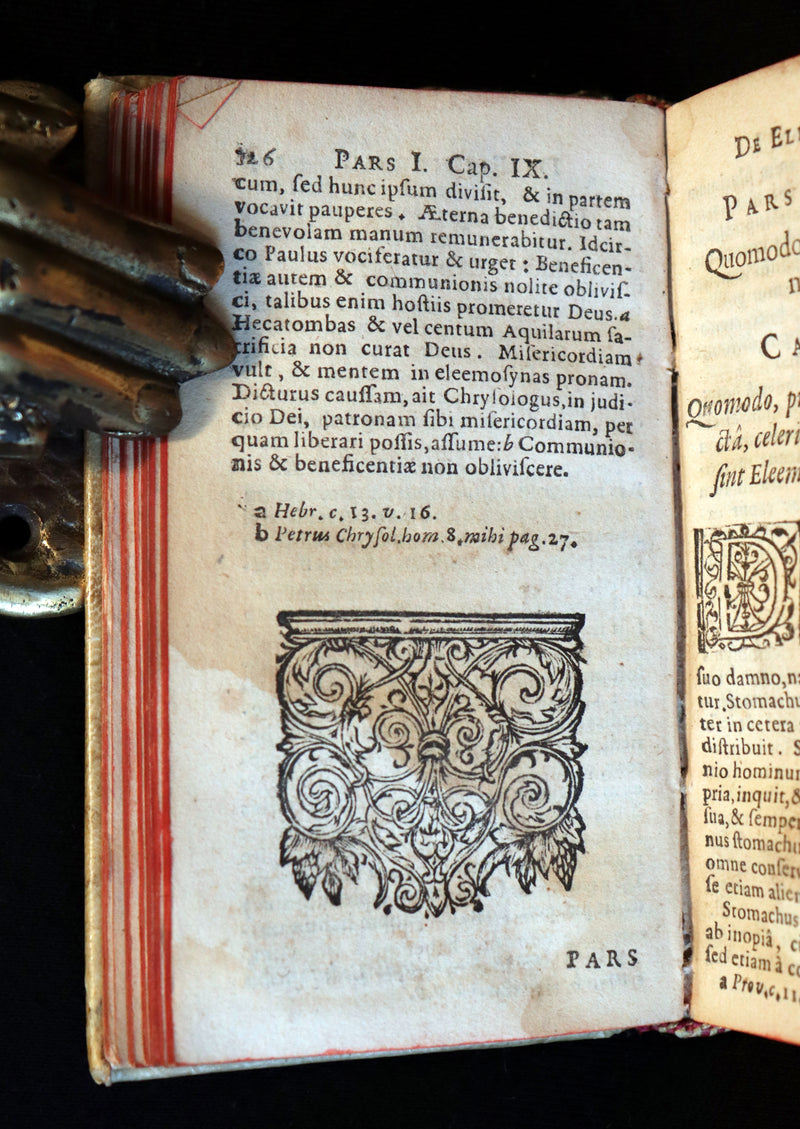 126 PARS I. Cap. IX.
cum, ſed hunc ipſum diviſit, & in partem
vocavit pauperes. Æterna benedictio tam
benevolam manum remunerabitur. Idcir-
co Paulus vociferatur & urget: Beneficen-
tiæ autem & communionis nolite obliviſ-
ci, talibus enim hoſtiis promeretur Deus. a
Hecatombas & vel centum Aquilarum ſa-
crificia non curat Deus. Miſericordiam
vult, & mentem in eleemoſynas pronam.
Dicturus cauſſam, ait Chryſologus, in judi-
cio Dei, patronam ſibi miſericordiam, per
quam liberari poſſis, aſſume: b Communio-
nis & beneficentiæ non obliviſcere.
a Hebr. c. 13. v. 16.
b Petrus Chryſol. hom. 8. mihi pag. 27.
PARS
DE
PARS
Quomodo
Quomodo,
ctâ, celeri
ſint
D
ſuo damno,
tur. Stomach
ter in cetera
diſtribuit.
nio hominu
pria, inquit, &
ſua, & ſempe
nus ſtomach
omne conſer
ſe etiam alie
Stomachus
ab inopiâ,
ſed etiam à
a Prov. c. 11